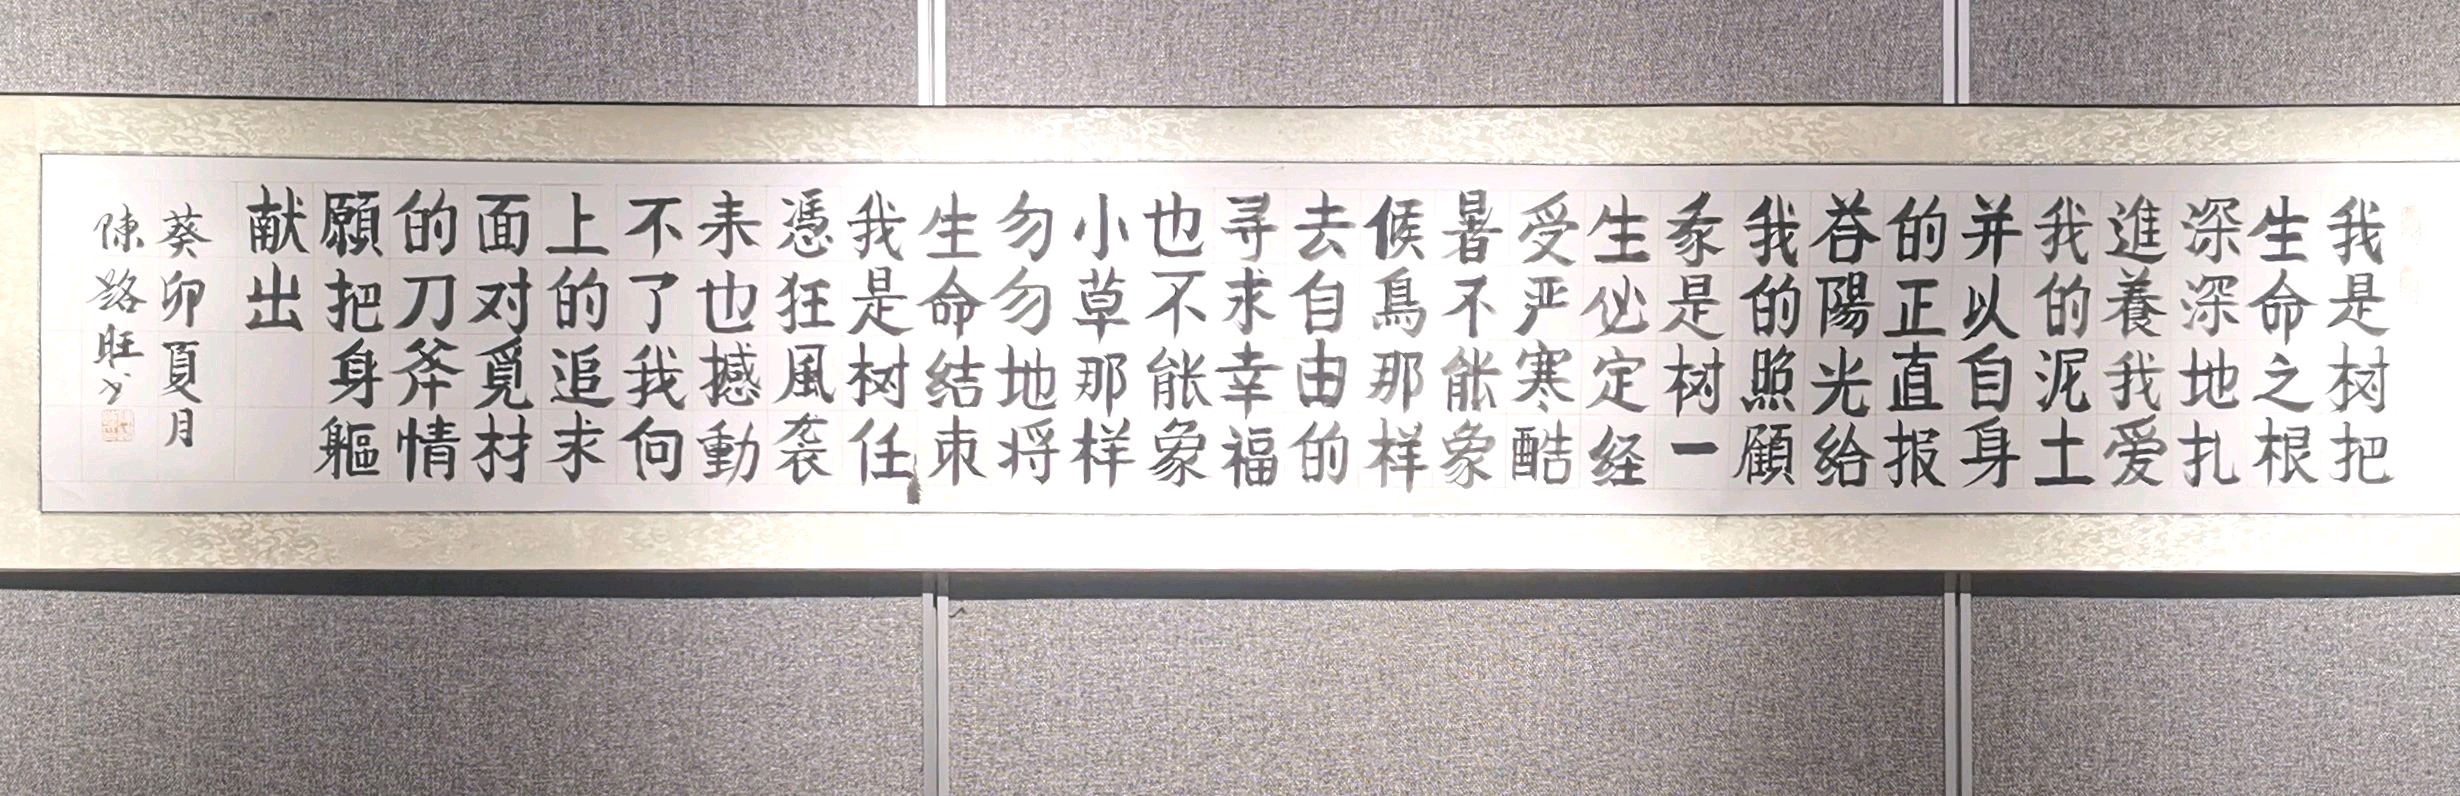 我是树把
生命之根
深深地扎
進養我爱
我的泥土
并以自身
的正直报
荅陽光给
我的照顧
是树一
生必定经
受严寒酷
暑不能象
候鳥那样
去自由的
寻求幸福
也不能象
小草那样
勿勿地将
生命结束
我是树任
憑狂風袭
来也撼動
不了我向
上的追求
面对觅材
的刀斧情
願把身軀
献出
葵卯夏月
陳路旺书